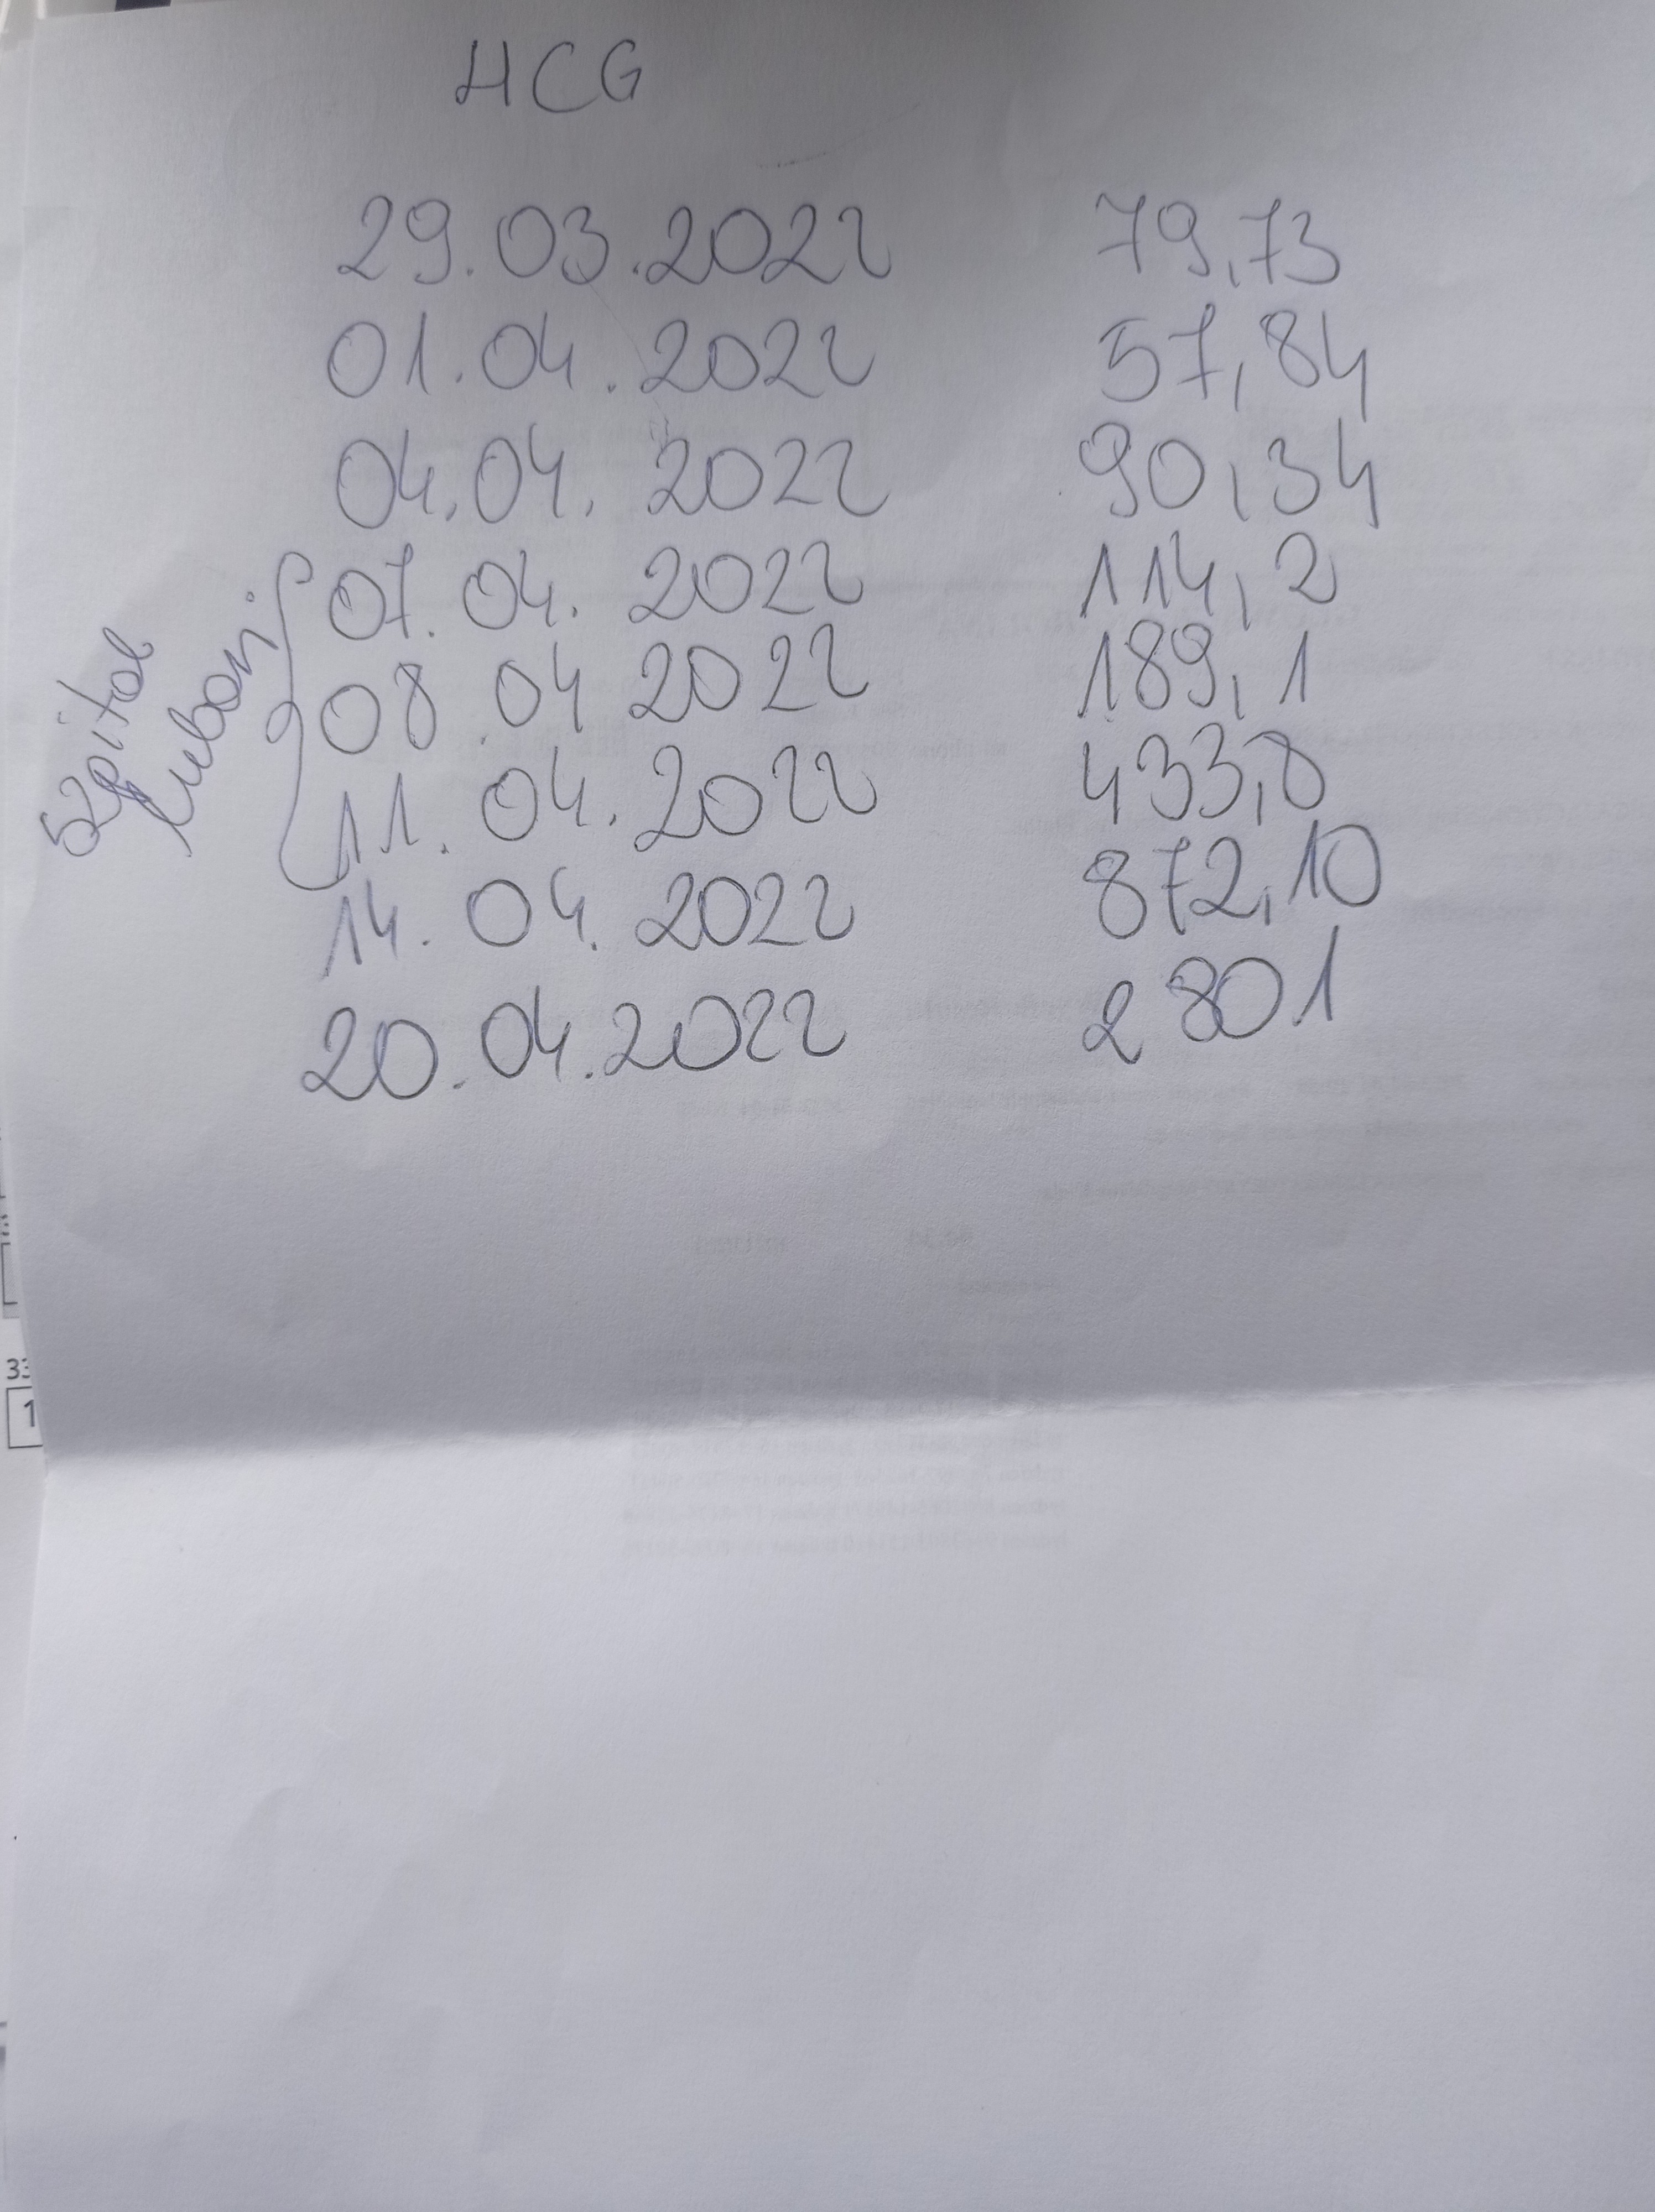 HCG
29.03.2022 79,73
01.04.2022 57,84
04.04.2022 90,34
07.04.2022 114,2
08.04 2022 189,1
11.04.2022 433,8
14.04.2022 872,10
20.04.2022 2801
Szpital
Luboń
33
1